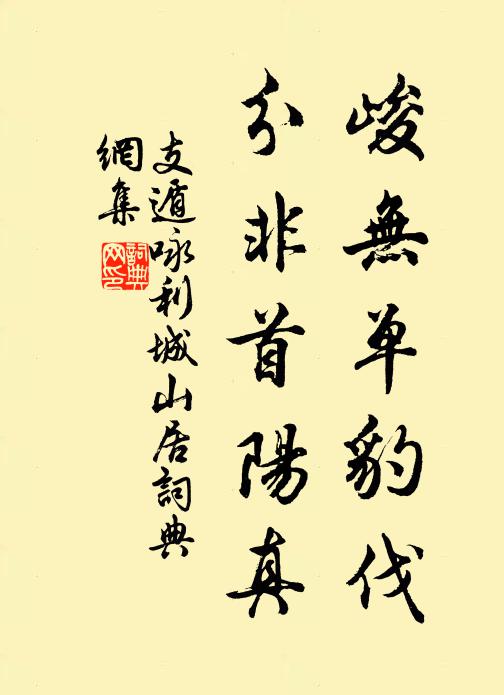 峻無單豹伐
分非首陽真
支遁咏利城山居詞典
網集
詞典
网印